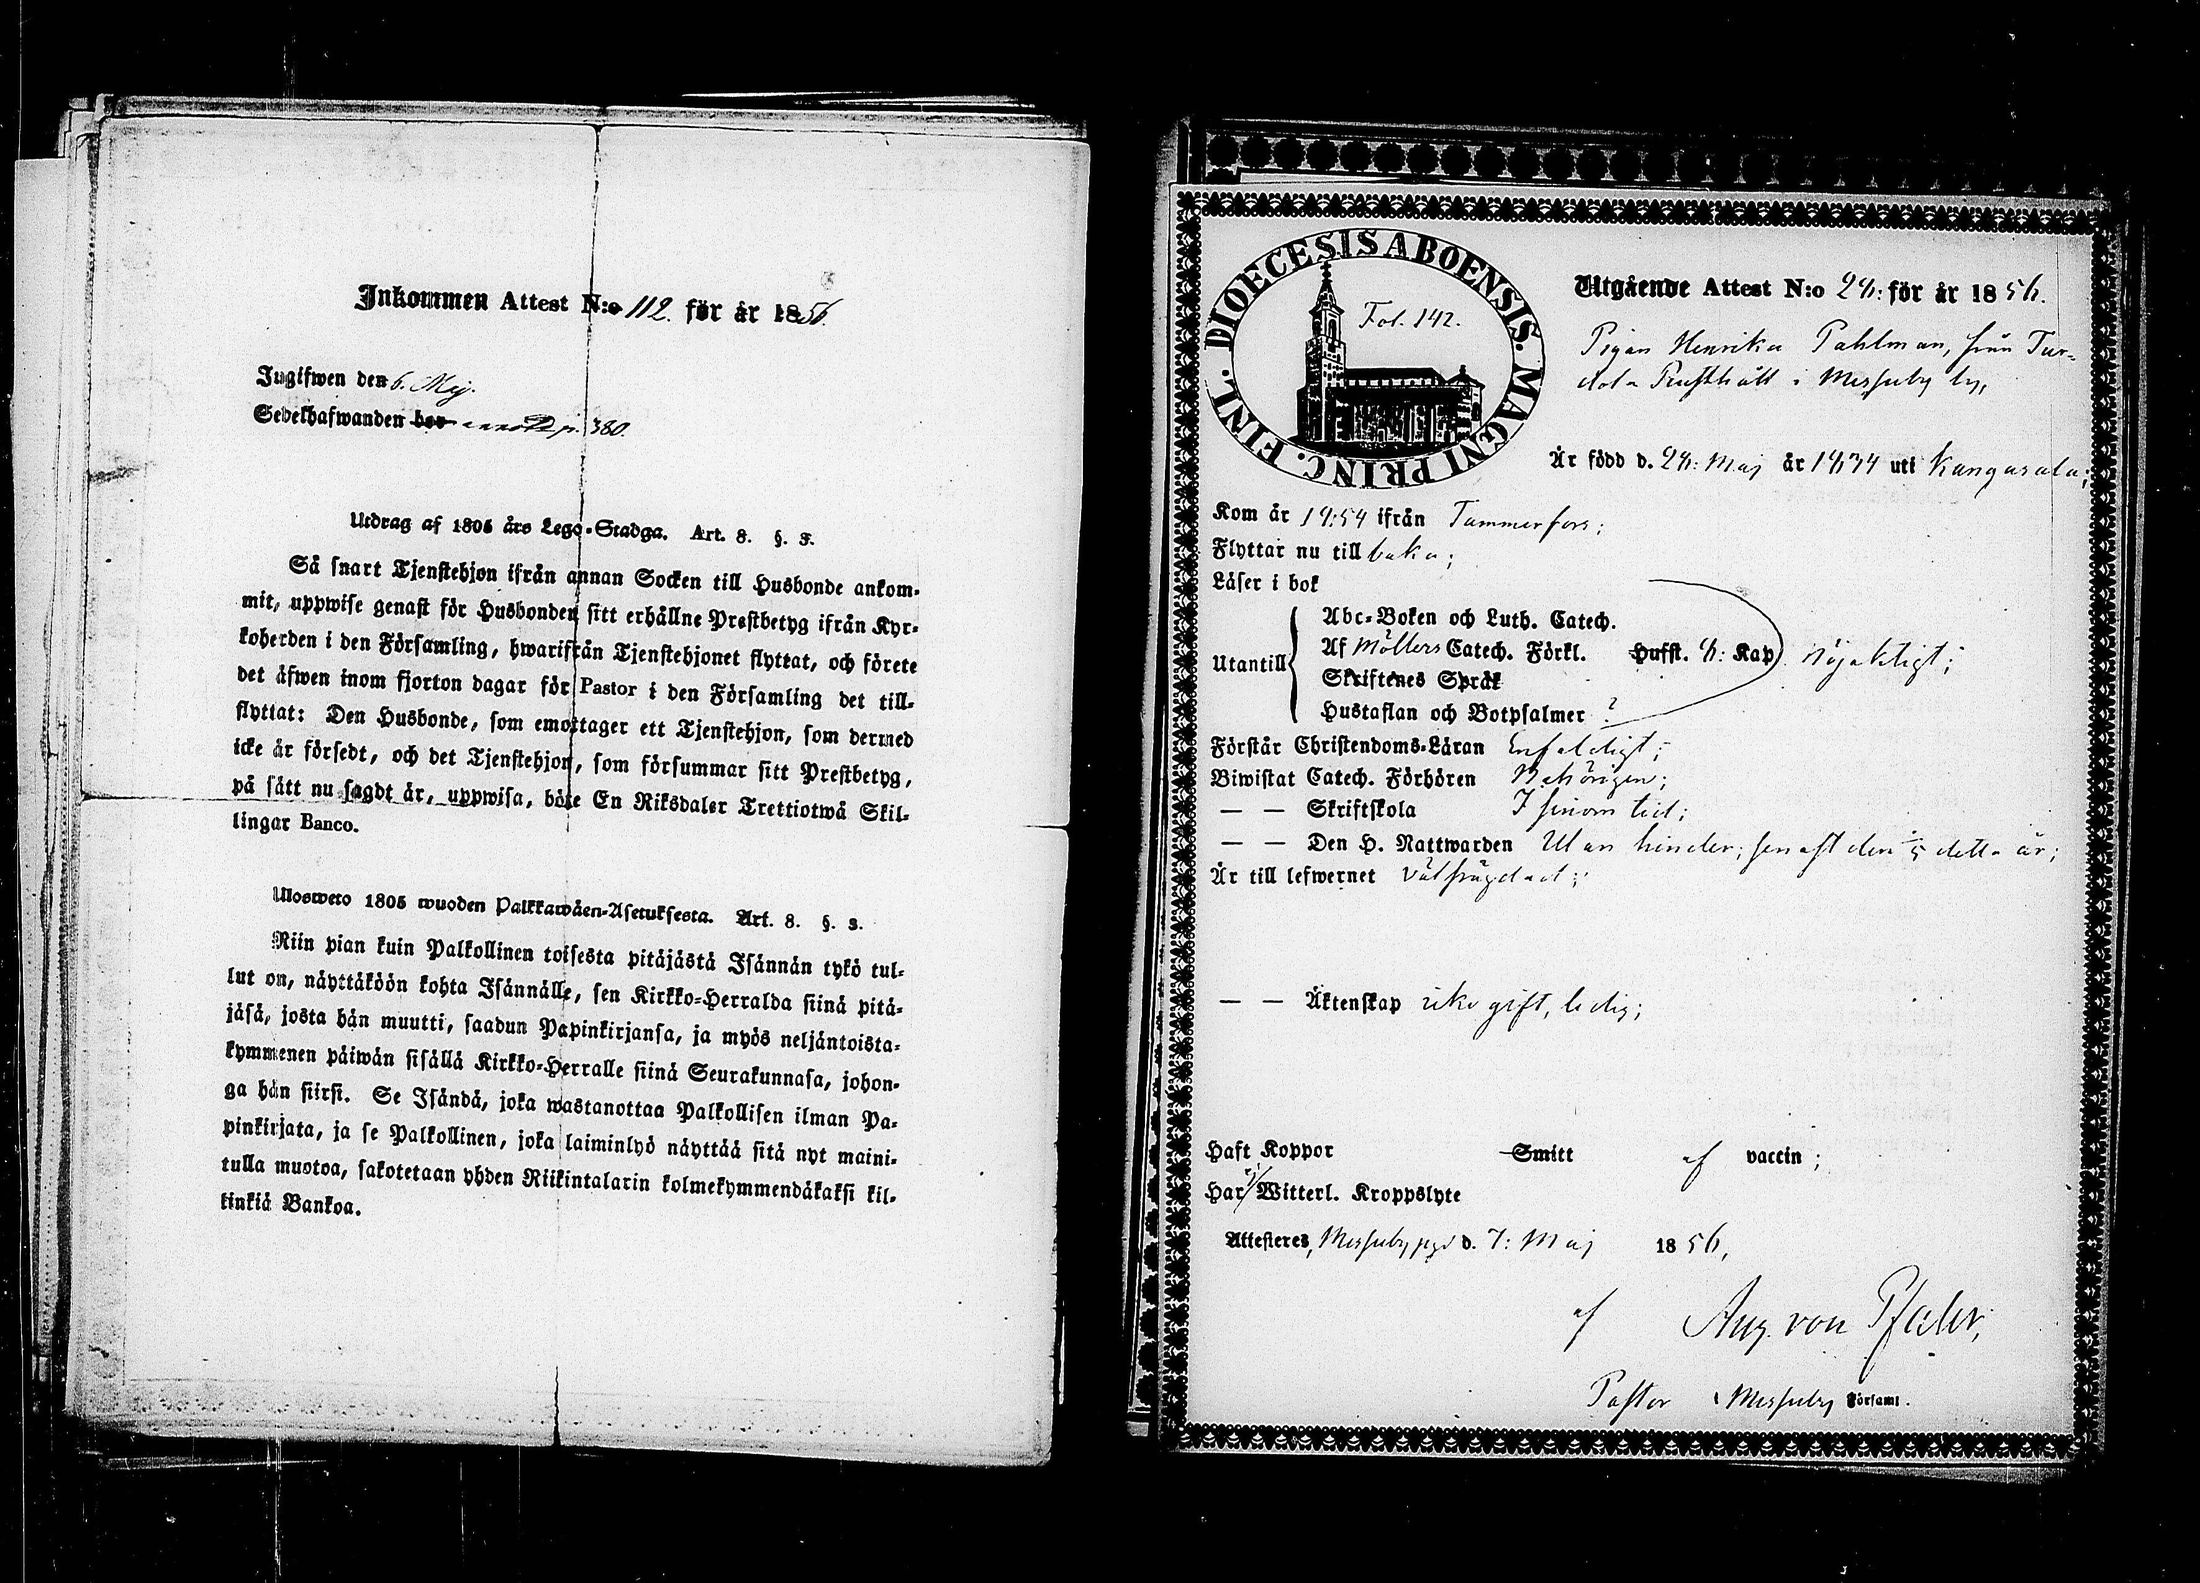 Inkommen Attest N:o 112. för år 1856.
Ingifwen den 6. Maj.
Sedelhafwanden bor annot. p. 380.
Utdrag af 1805 års Lego-Stadga. Art. 8. §. 3.
Så snart Tjenstehjon ifrån annan Socken till Husbonde ankom-
mit, uppwise genast för Husbonden sitt erhållne Prestbetyg ifrån Kyr-
koherden i den Församling, hwarifrån Tjenstehjonet flyttat, och förete
det äfwen inom fjorton dagar för Pastor i den Församling det till-
flyttat: Den Husbonde, som emottager ett Tjenstehjon, som dermed
icke är försedt, och det Tjenstehjon, som försummar sitt Prestbetyg,
på sätt nu sagdt är, uppwisa, böte En Riksdaler Trettiotwå Skil-
lingar Banco.
Ulosweto 1805 wuoden Palkkawäen-Asetuksesta. Art. 8. §. 3.
Niin pian kuin Palkollinen toisesta pitäjästä Isännän tykö tul-
lut on, näyttäköön kohta Isännälle, sen Kirkko-Herralda siinä pitä-
jäsä, josta hän muutti, saadun Papinkirjansa, ja myös neljäntoista-
kymmenen päiwän sisällä Kirkko-Herralle siinä Seurakunnasa, johon-
ga hän siirsi. Se Isändä, joka wastanottaa Palkollisen ilman Pa-
pinkirjata, ja se Palkollinen, joka laiminlyö näyttää sitä nyt maini-
tulla muotoa, sakotetaan yhden Riikintalarin kolmekymmendäkaksi kil-
linkiä Bankoa.
DIOECESIS ABOENSIS. MAGNI PRINC. FINL.
Fol. 142.
Utgående Attest N:o 26: för år 1856.
Pigan Henrika Pahlman, från Tur-
dola Rusthåll i Messuby by,
Är född d. 26: Maj år 1834 uti Kangasala;
Kom år 1854 ifrån Tammerfors;
Flyttar nu till baka;
Läser i bok
Abc-Boken och Luth. Catech.
Utantill Af Möllers Catech. Förkl. Hufst. 6: Kap. nöjaktigt;
Skriftenes Språk
Hustaflan och Botpsalmer ?
Förstår Christendoms-Läran Enfaldigt;
Biwistat Catech. Förhören Behörigen;
— — Skriftskola I sinom tid;
— — Den H. Nattwarden Utan hinder; senast den 1/5 detta år;
Är till lefwernet välfrägdad;
— — Äktenskap icke gift, ledig;
Haft Koppor Smitt af vaccin;
Har ej Witterl. Kroppslyte
Attesteres, Messuby pgd d. 7: Maj 1856,
af Aug. von Pfaler,
Pastor i Messuby Församl.